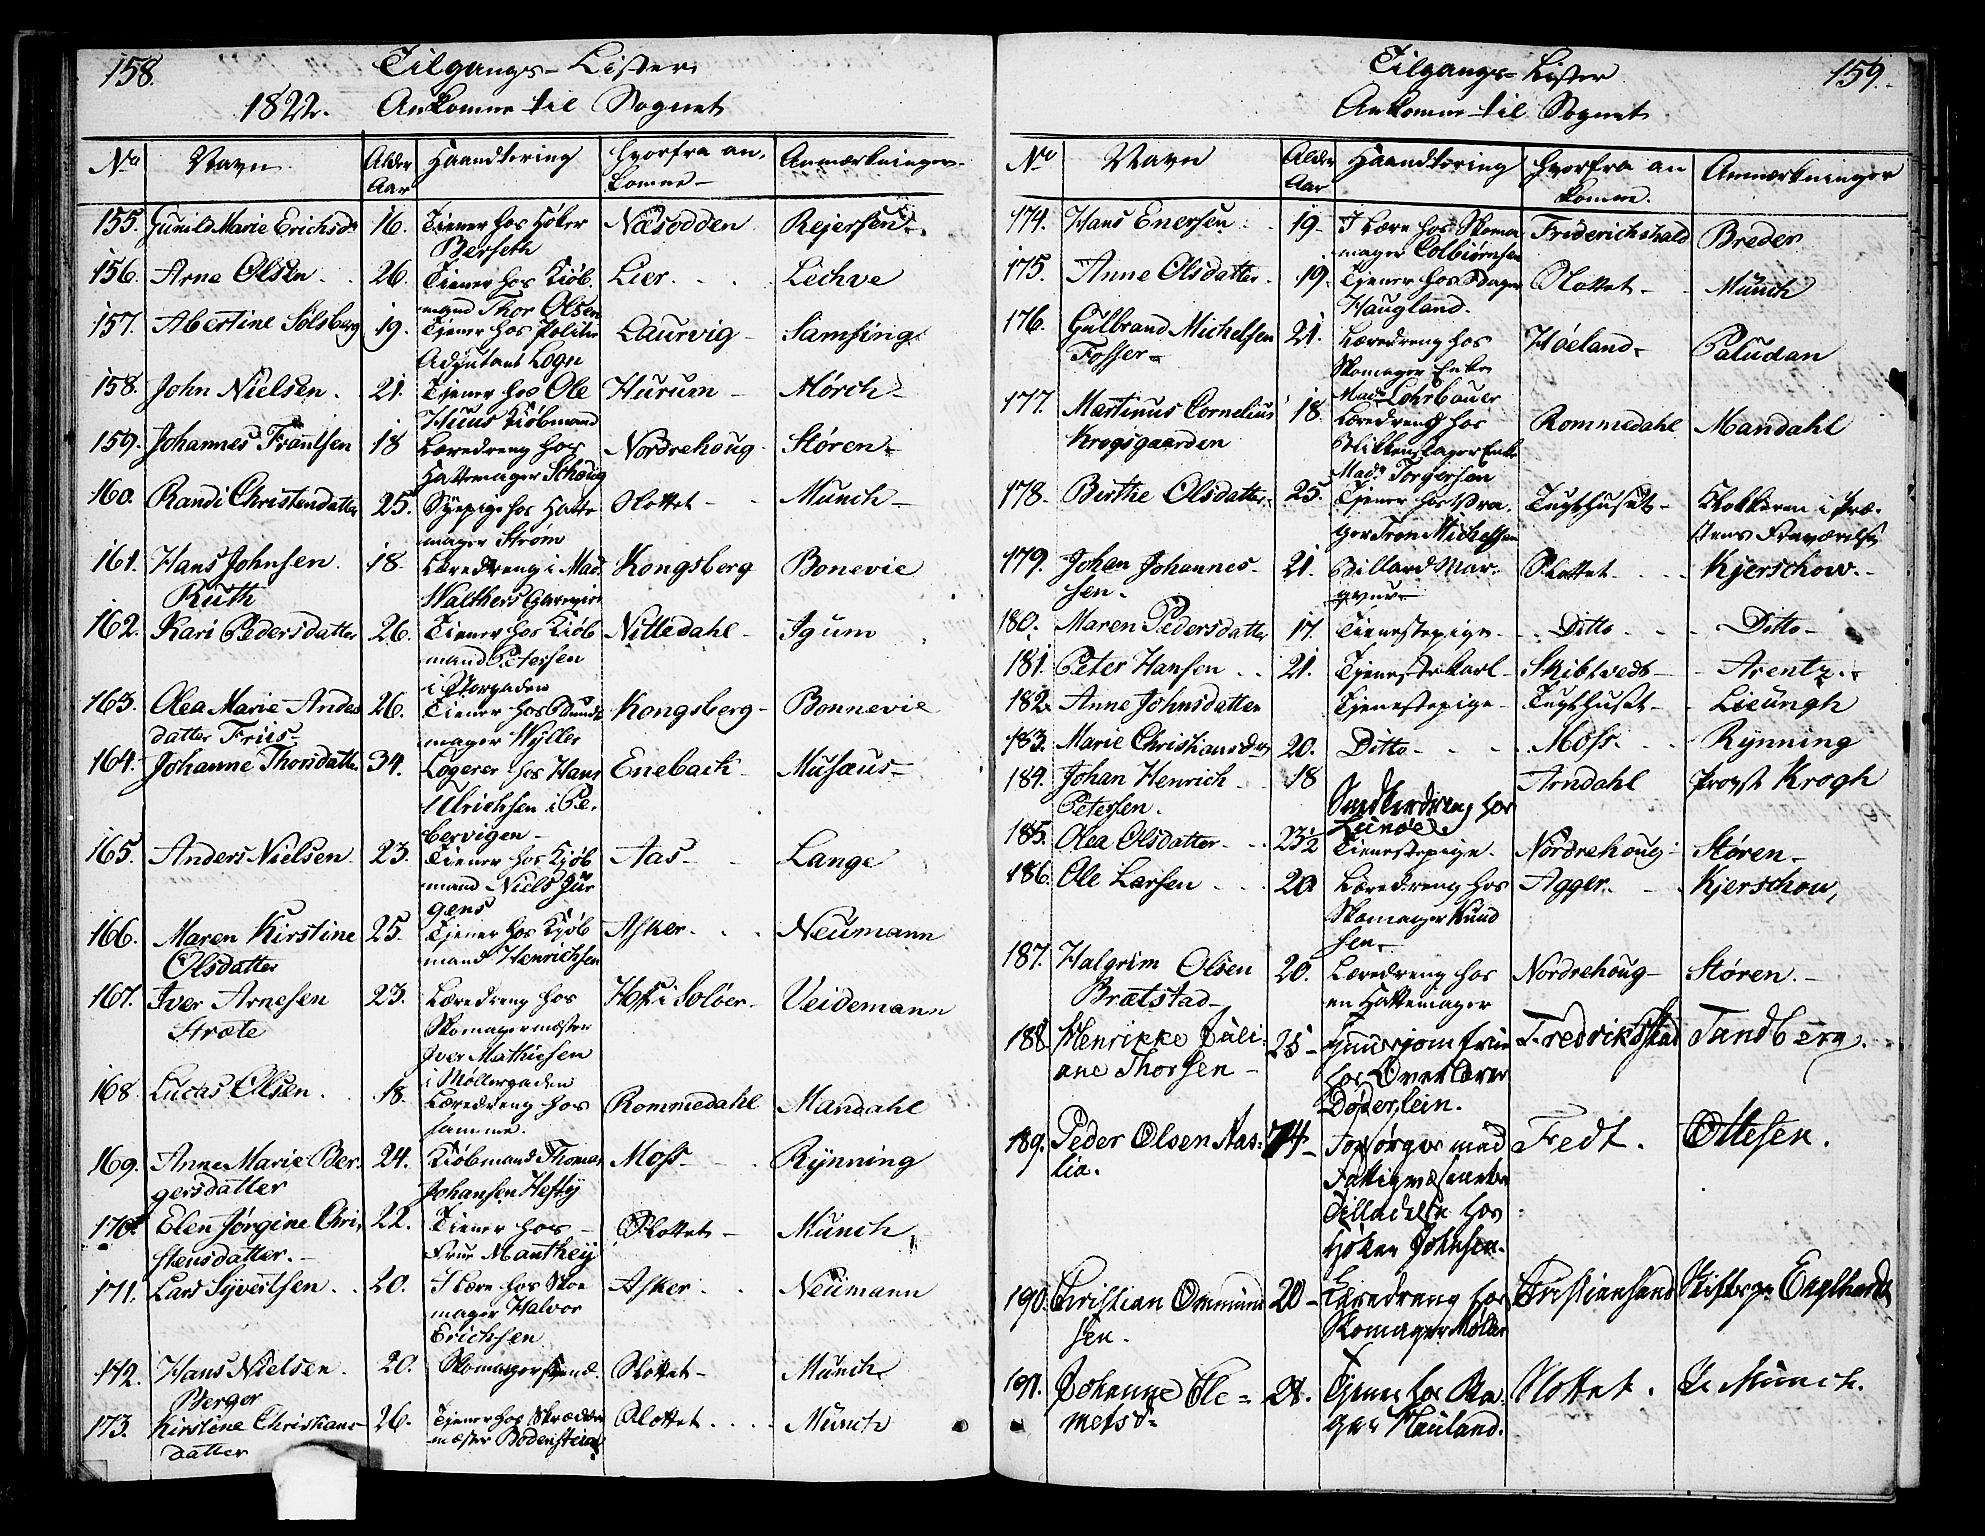 158.
Tilgangs-Lister
1822. Ankomne til Sognet
No Navn Alder Aar Haandtering Hvorfra ankomne Anmærkninger
155. Gunild Marie Erichsd. 16. Tiener hos Høker Berseth Næsodden Rejersen
156. Arne Olsen 26. Tiener hos Kiøbmand Thor Olsen Lier Lechve
157. Abertine Solsberg 19. Tiener hos Politie Adjutant Logn Laurvig Samsing
158. John Nielsen 21. Tiener hos Ole Huus Kiøbmand Hurum Mørch
159. Johannes Frantsen 18 Læredreng hos Hattemager Schoug Nordrehoug Støren
160. Randi Christendatter 25. Sypige hos Hattemager Strøm Slottet Munch
161. Hans Johnsen Ruth 18. Læredreng i Mad. Walthers Kongsberg Bonevie
162. Kari Pedersdatter 26. Tiener hos Kiøbmand Petersen i Storgaden Nittedahl Igum
163. Olea Marie Andersdatter Friis 26. Tiener hos Bundtmager Wyller Kongsberg Bonnevie
164. Johanne Thorsdatter 34. Logerer hos Hans Ulrichsen i Pebervigen Eneback Musæus
165. Anders Nielsen 23. Tiener hos Kjøbmand Niels Jürgens Aas Lange
166. Maren Kirstine Olsdatter 25. Tjener hos Kjøbmand Henrichsen Asker Neumann
167. Iver Arnesen Stræte 23. Læredreng hos Skomagermester Iver Mathiesen i Møllergaden Hof i Soløer Veidemann
168. Lucas Olsen 18. Læredreng hos samme. Rommedahl Mandahl
169. Anne Marie Bergersdatter 24. Kiøbmand Thomas Johansen Hefty Moss Rynning
170. Elen Jørgine Christensdatter 22. Tiener hos Frue Manthey Slottet Münch
171. Lars Syvertsen 20. I Lære hos Skomager Halvor Erichsen Asker Neumann
172. Hans Nielsen Berger 20. Skomagersvend Slottet Münch
173. Kirstine Christiansdatter 26. Tjener hos Skræddermester Bodenstein Slottet Münch
Tilgangs-Lister 159.
Ankomne til Sognet
No Navn Alder Aar Haandtering Hvorfra ankomne. Anmærkninger
174. Hans Enersen 19 I Lære hos Skomager Colbiørnsen Friderichshald Breder
175. Anne Olsdatter 19. Tjener hos Bager Haugland. Slottet Münch
176. Gulbrand Michelsen Fosser 21. Læredreng hos Skomager Enke Mad. Lohrbauer Høeland Paludan
177. Martinus Cornelius Krogsgaarden 18 Læredreng hos Blikkenslager Enke Mad. Torgersen Rommedahl Mandahl
178. Birthe Olsdatter 25. Tjener hos Vrager Tron Michelsen Tugthuset Klokkeren i Præstens Fraværelse
179. Johan Johannessen. 21. Billard Marqveur Slottet Kjerschow.
180. Maren Pedersdatter 17. Tienestepige Ditto Ditto
181. Peter Hansen 21. Tjenestekarl Skibtvedt Arentz.
182. Anne Johnsdatter Tjenestepige Tugthuset Lieungh
183. Marie Christiansdr 20. Ditto Moss. Rynning
184. Johan Henrich Petersen. 18 Snedkerdreng hos Lunøe Arndahl Provst Krogh
185. Olea Olsdatter 23½ Tienestepige. Nordrehoug Støren
186. Ole Larsen 20 Læredreng hos Skomager Knudsen Agger. Kjerschow,
187. Halgrim Olsen Brætstad 20. Læredreng hos en Hattemager Nordrehoug Støren.
188. Henrikke Juliane Thorsen 25 Huusjomfrue hos Overlærer Døderlein. Fredrikstad Tandberg.
189. Peder Olsen Aaslia. 74 Forsørges med Fattigvæsenets Tilladelse hos Høker Johnsen. Fedt. Ottesen.
190. Christian Ommundsen. 20 Læredreng hos Skomager Møller Christiansand Stiftsp. Engelhardt
191. Johanne Clemetsd. 28. Tjener hos Bager Hauland. Slottet. Münch.